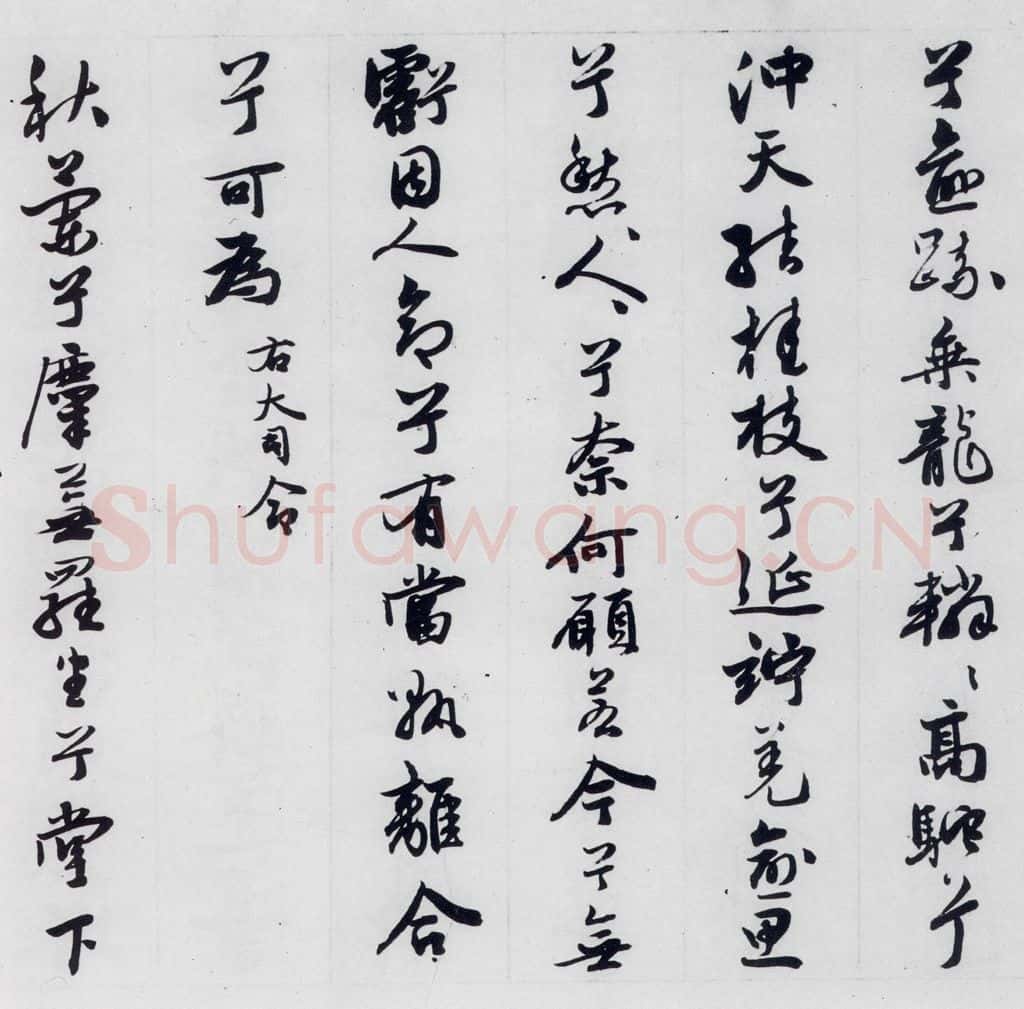 兮愈踈乘龍兮轔〻高駝兮
沖天結桂枝兮延竚羌愈思
兮愁〻人〻兮奈何願若今兮無
虧固人命兮有當孰離合
兮可為
右大司命
秋蘭兮麋蕪羅生兮堂下
Shufawang.CN